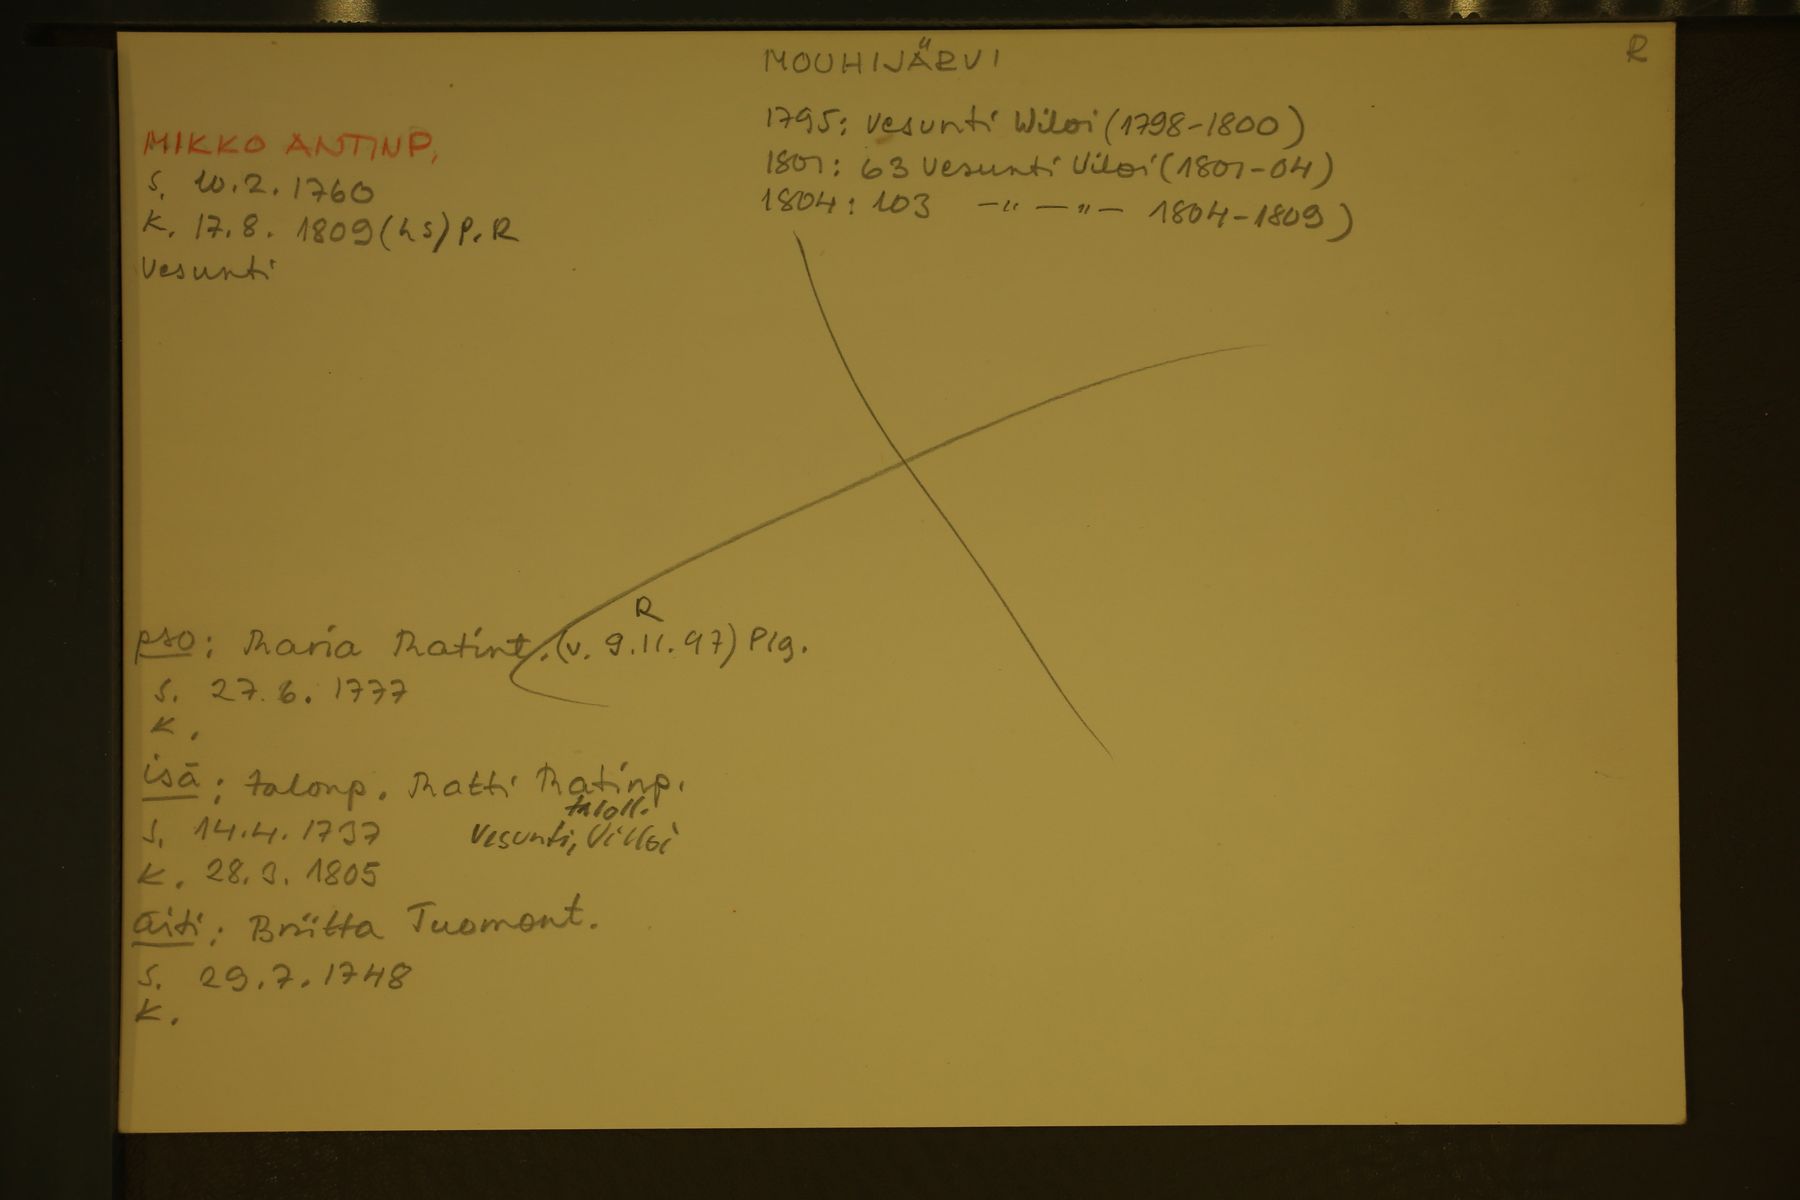 MOUHIJÄRVI
R
1795: Vesunti Wiloi (1798-1800)
1801: 63 Vesunti Viloi (1801-04)
1804: 103 -"- -"- 1804-1809)
MIKKO ANTINP.
s. 10.2.1760
k. 17.8. 1809 (hs) P.R
Vesunti
R
pso: Maria Matint. (v. 9.11.97) Plg.
s. 27.6.1777
k.
isä: talonp. Matti Matinp.
taloll.
s. 14.4.1737 Vesunti, Villoi
k. 28.3.1805
äiti: Briitta Tuomont.
s. 29.7.1748
k.